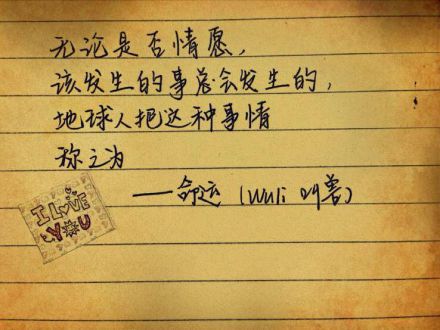 无论是否情愿，
该发生的事总会发生的，
地球人把这种事情
称之为
——命运（Wuli 叫兽）
I LOVE
YOU